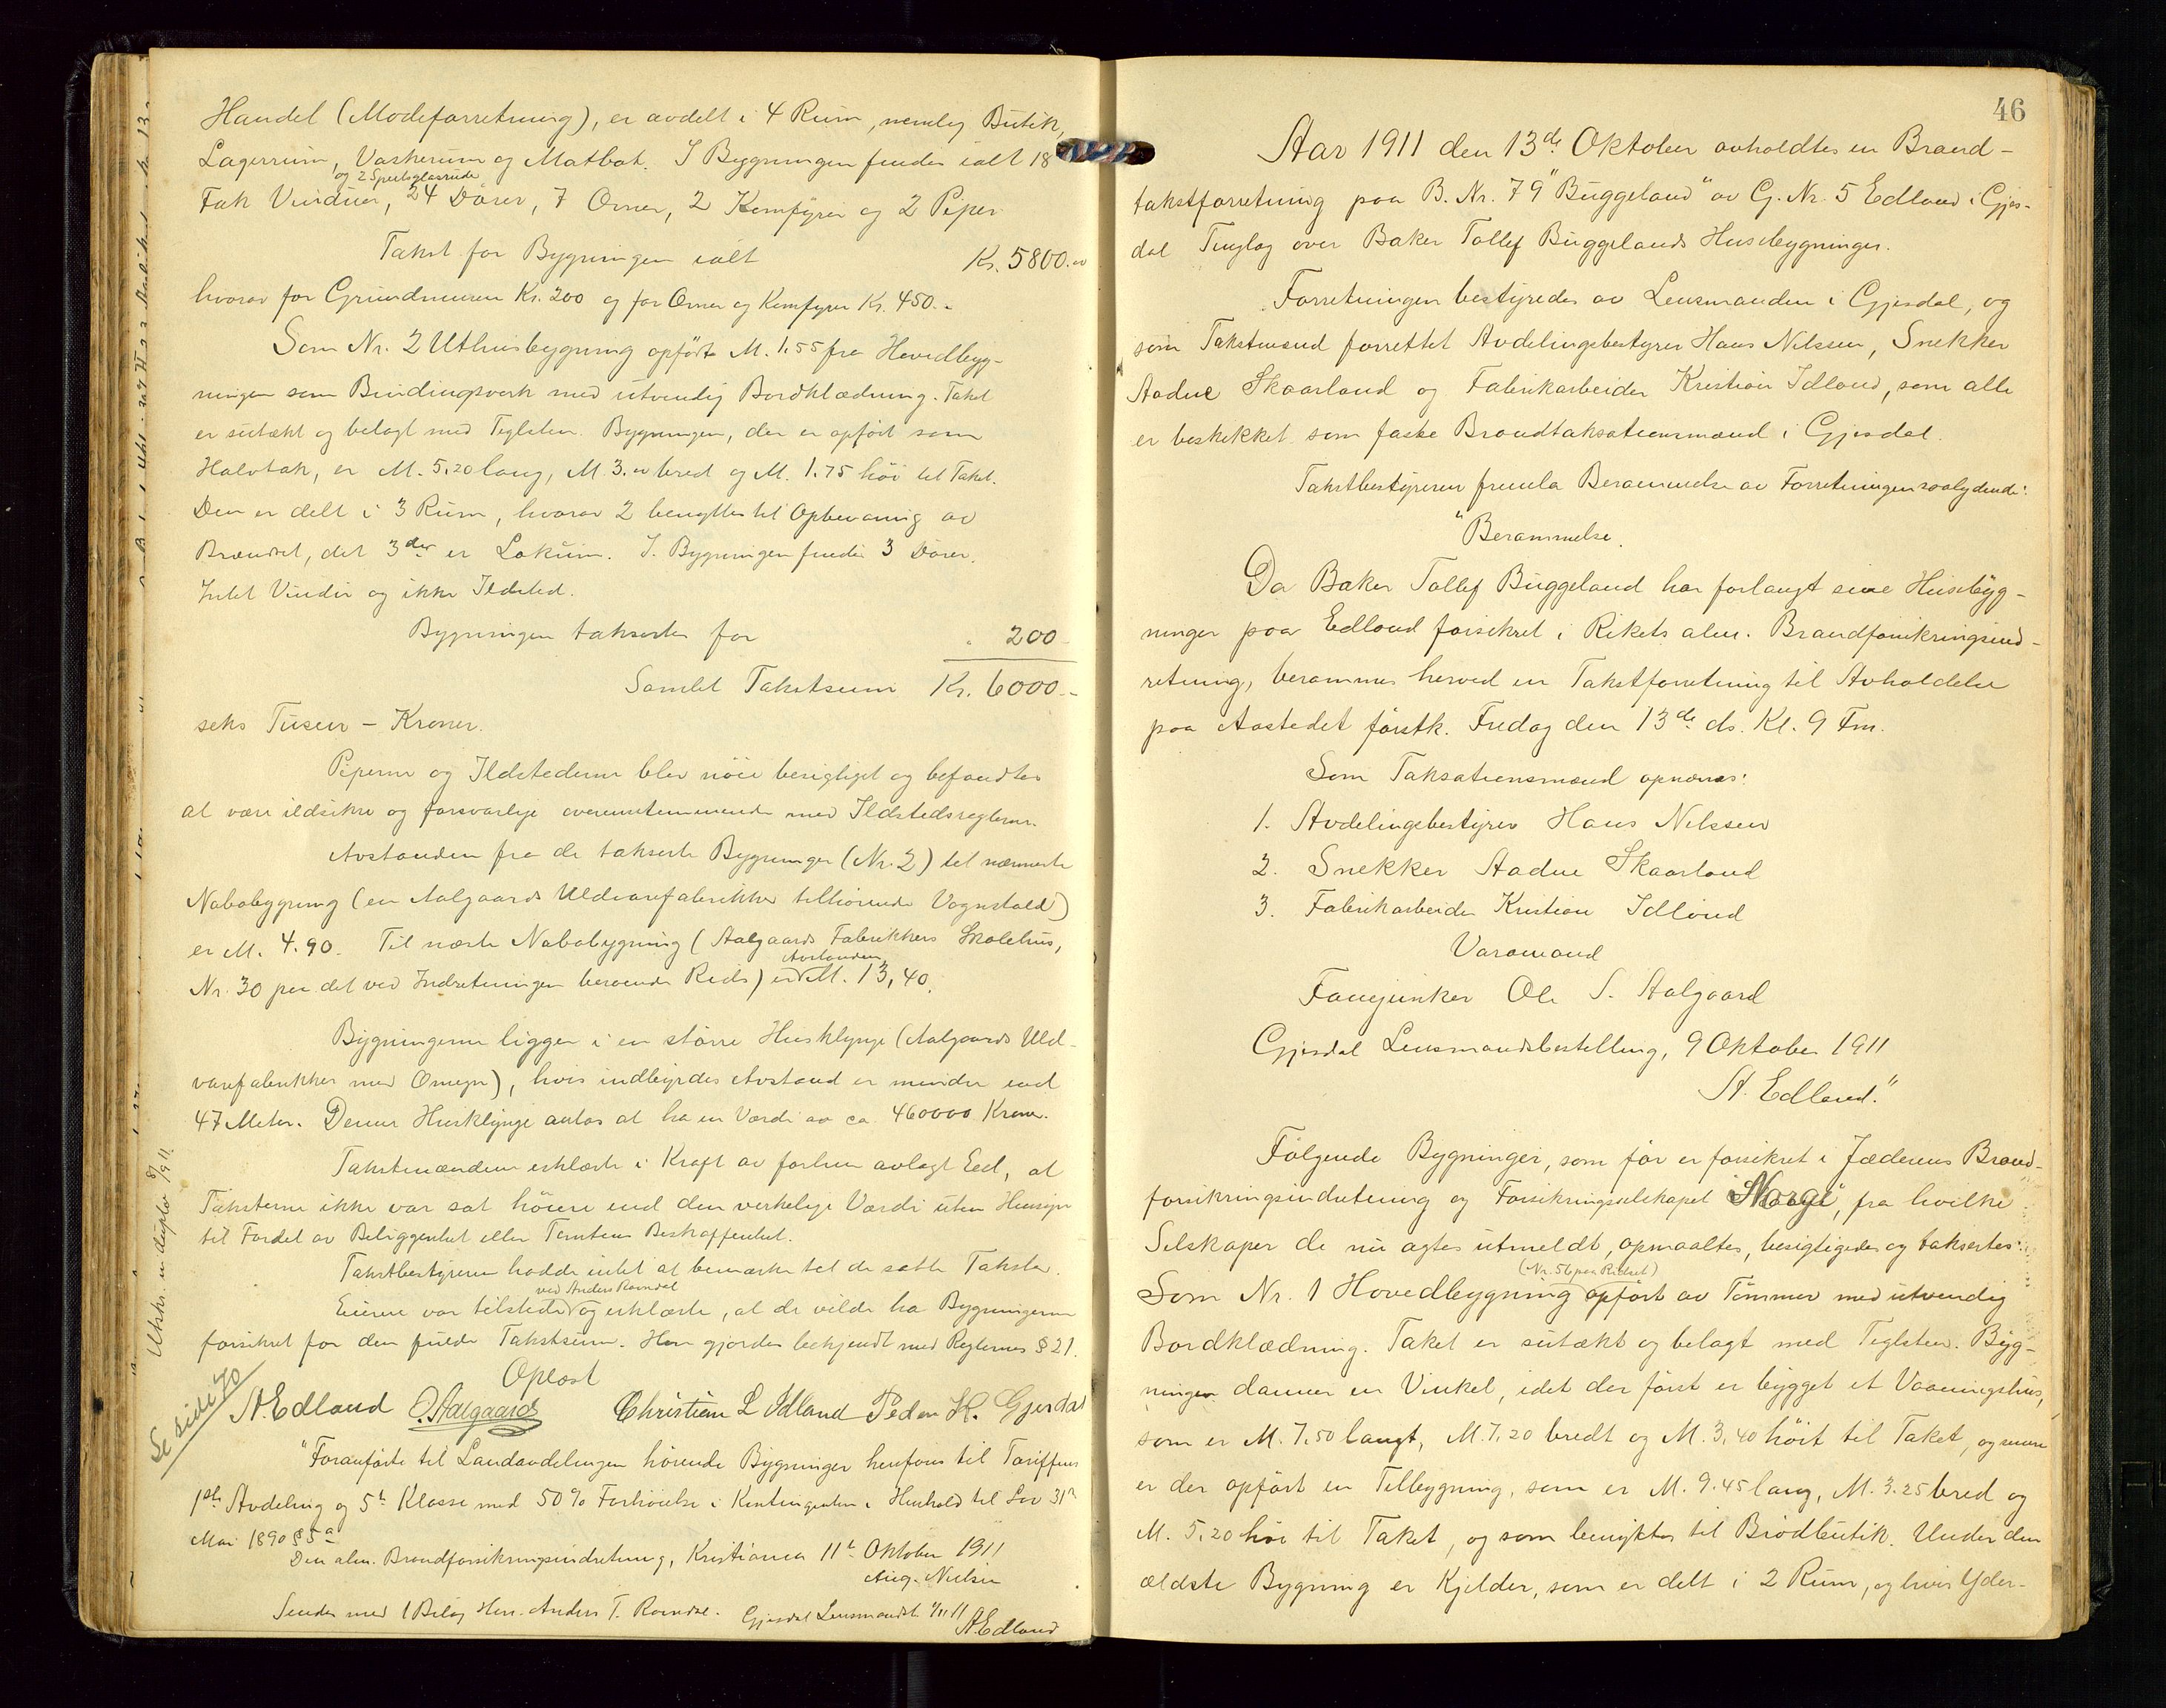 Handel (Modeforretning), er avdelt i 4 Rum, nemlig Butik,
Lagerrum, Vaskerum og Matbod. I Bygningen findes ialt 18
og 2 Speilglasrude
Fak Vinduer, 24 Dører, 7 Ovner, 2 Komfyrer og 2 Piper.
Takst for Bygningen ialt Kr. 5800.00
hvorav for Grundmuren Kr. 200 og for Ovner og Komfyrer Kr. 450.-
Som Nr. 2 Uthusbygning opført M. 1.55 fra Hovedbyg-
ningen som Bindingsverk med utvendig Bordklædning. Taket
er sutækt og belagt med Teglsten. Bygningen, der er opført som
Halvtak, er M. 5.20 lang, M. 3.00 bred og M. 1.75 høi til Taket.
Den er delt i 3 Rum, hvorav 2 benyttes til Opbevaring av
Brændsel, det 3die er Lokum. I Bygningen findes 3 Dører,
Intet Vindu og ikke Ildsted.
Bygningen takseres for " 200 -
Samlet Takstsum Kr. 6000.-
seks Tusen - Kroner.
Piperne og Ildstederne blev nøie besigtiget og befandtes
at være ildsikre og forsvarlige overensstemmende med Ildstedsreglerne.
Avstanden fra de takserte Bygninger (Nr. 2) til nærmeste
Nabobygning (en Aalgaards Uldvarefabrikker tilhørende Vognstald)
er M. 4.90. Til næste Nabobygning (Aalgaards Fabrikkers Skolehus,
Avstanden
Nr. 30 paa det ved Indretningen beroende Rids) er M. 13,40.
Bygningerne ligger i en større Husklynge (Aalgaards Uld-
varefabrikker med Omegn), hvis indbyrdes Avstand er mindre end
47 Meter. Denne Husklynge antas at ha en Værdi av ca. 460000 Kroner.
Takstmændene erklærte i Kraft av forhen avlagt Eed, at
Taksterne ikke var sat høiere end den virkelige Værdi uten Hensyn
til Fordel av Beliggenhet eller Tomtens Beskaffenhet.
Takstbestyreren hadde intet at bemærke til de satte Takster.
ved Anders Ravndal
Eierne var tilstede og erklærte, at de vilde ha Bygningerne
forsikret for den fulde Takstsum. Han gjordes bekjendt med Reglernes § 21.
Oplæst
A. Edland O. Aalgaard Christian L Idland Peder K. Gjesdal
Se side 70
"Foranførte til Landavdelingen hørende Bygninger henføres til Tariffens
1ste Avdeling og 5te Klasse med 50% Forhøielse i Kontingenten i Henhold til Lov 31te
Mai 1890 § 5a
Den alm. Brandforsikringsindretning, Kristiania 11te Oktober 1911
Aug. Nielsen
Sendes med 1 Bilag Herr Anders T. Ravndal. Gjesdal Lensmandsb. 1/11 11
A Edland
Utskr. in duplo 8/9 11.
46
Aar 1911 den 13de Oktober avholdtes en Brand-
takstforretning paa B. Nr. 79 "Buggeland" av G. Nr. 5 Edland i Gjes-
dal Tinglag over Baker Tollef Buggelands Husebygninger.
Forretningen bestyredes av Lensmanden i Gjesdal, og
som Takstmænd forrettet Avdelingsbestyrer Hans Nilssen, Snekker
Aadne Skaarland og Fabrikarbeider Kristian Idland, som alle
er beskikket som faste Brandtaksationsmænd i Gjesdal.
Takstbestyreren fremla Berammelse av Forretningen saalydende:
"Berammelse.
Da Baker Tollef Buggeland har forlangt sine Husebyg-
ninger paa Edland forsikret i Rikets alm. Brandforsikringsind-
retning, berammes herved en Takstforretning til Avholdelse
paa Aastedet førstk. Fredag den 13de ds. Kl. 9 Fm.
Som Taksationsmænd opnævnes:
1. Avdelingsbestyrer Hans Nilssen
2. Snekker Aadne Skaarland
3. Fabrikarbeider Kristian Idland
Varamand
Fanejunker Ole S. Aalgaard
Gjesdal Lensmandsbestilling, 9 Oktober 1911
A. Edland."
Følgende Bygninger, som før er forsikret i Jæderens Brand-
forsikringsindretning og Forsikringsselskapet "Norge", fra hvilke
Selskaper de nu agtes utmeldt, opmaaltes, besigtigedes og taksertes:
(Nr. 56 paa Ridset)
Som Nr. 1 Hovedbygning opført av Tømmer med utvendig
Bordklædning. Taket er sutækt og belagt med Teglsten. Byg-
ningen danner en Vinkel, idet der først er bygget et Vaaningshus,
som er M. 7,50 langt, M. 7,20 bredt og M. 3,40 høit til Taket, og senere
er der opført en Tilbygning, som er M. 9.45 lang, M. 3.25 bred og
M. 5,20 høi til Taket, og som benyttes til Brødbutik. Under den
ældste Bygning er Kjelder, som er delt i 2 Rum, og hvis Yder-